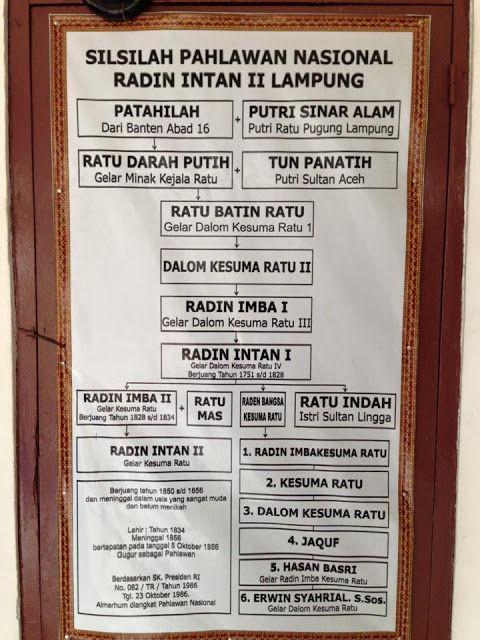 SILSILAH PAHLAWAN NASIONAL
RADIN INTAN II LAMPUNG
PATAHILAH
Dari Banten Abad 16
+
PUTRI SINAR ALAM
Putri Ratu Pugung Lampung
RATU DARAH PUTIH
Gelar Minak Kejala Ratu
+
TUN PANATIH
Putri Sultan Aceh
RATU BATIN RATU
Gelar Dalom Kesuma Ratu 1
DALOM KESUMA RATU II
RADIN IMBA I
Gelar Dalom Kesuma Ratu III
RADIN INTAN I
Gelar Dalom Kesuma Ratu IV
Berjuang Tahun 1751 s/d 1828
RADIN IMBA II
Gelar Kesuma Ratu
Berjuang Tahun 1828 s/d 1834
+
RATU
MAS
RADEN BANGSA
KESUMA RATU
RATU INDAH
Istri Sultan Lingga
RADIN INTAN II
Gelar Kesuma Ratu
Berjuang tahun 1850 s/d 1856
dan meninggal dalam usia yang sangat muda
dan belum menikah
Lahir : Tahun 1834
Meninggal 1856
bertepatan pada tanggal 5 Oktober 1856
Gugur sebagai Pahlawan
Berdasarkan SK. Presiden RI
No. 082 / TR / Tahun 1986
Tgl. 23 Oktober 1986.
Almerhum diangkat Pahlawan Nasional
1. RADIN IMBAKESUMA RATU
2. KESUMA RATU
3. DALOM KESUMA RATU
4. JAQUF
5. HASAN BASRI
Gelar Radin Imba Kesuma Ratu
6. ERWIN SYAHRIAL. S.Sos.
Gelar Dalom Kesuma Ratu